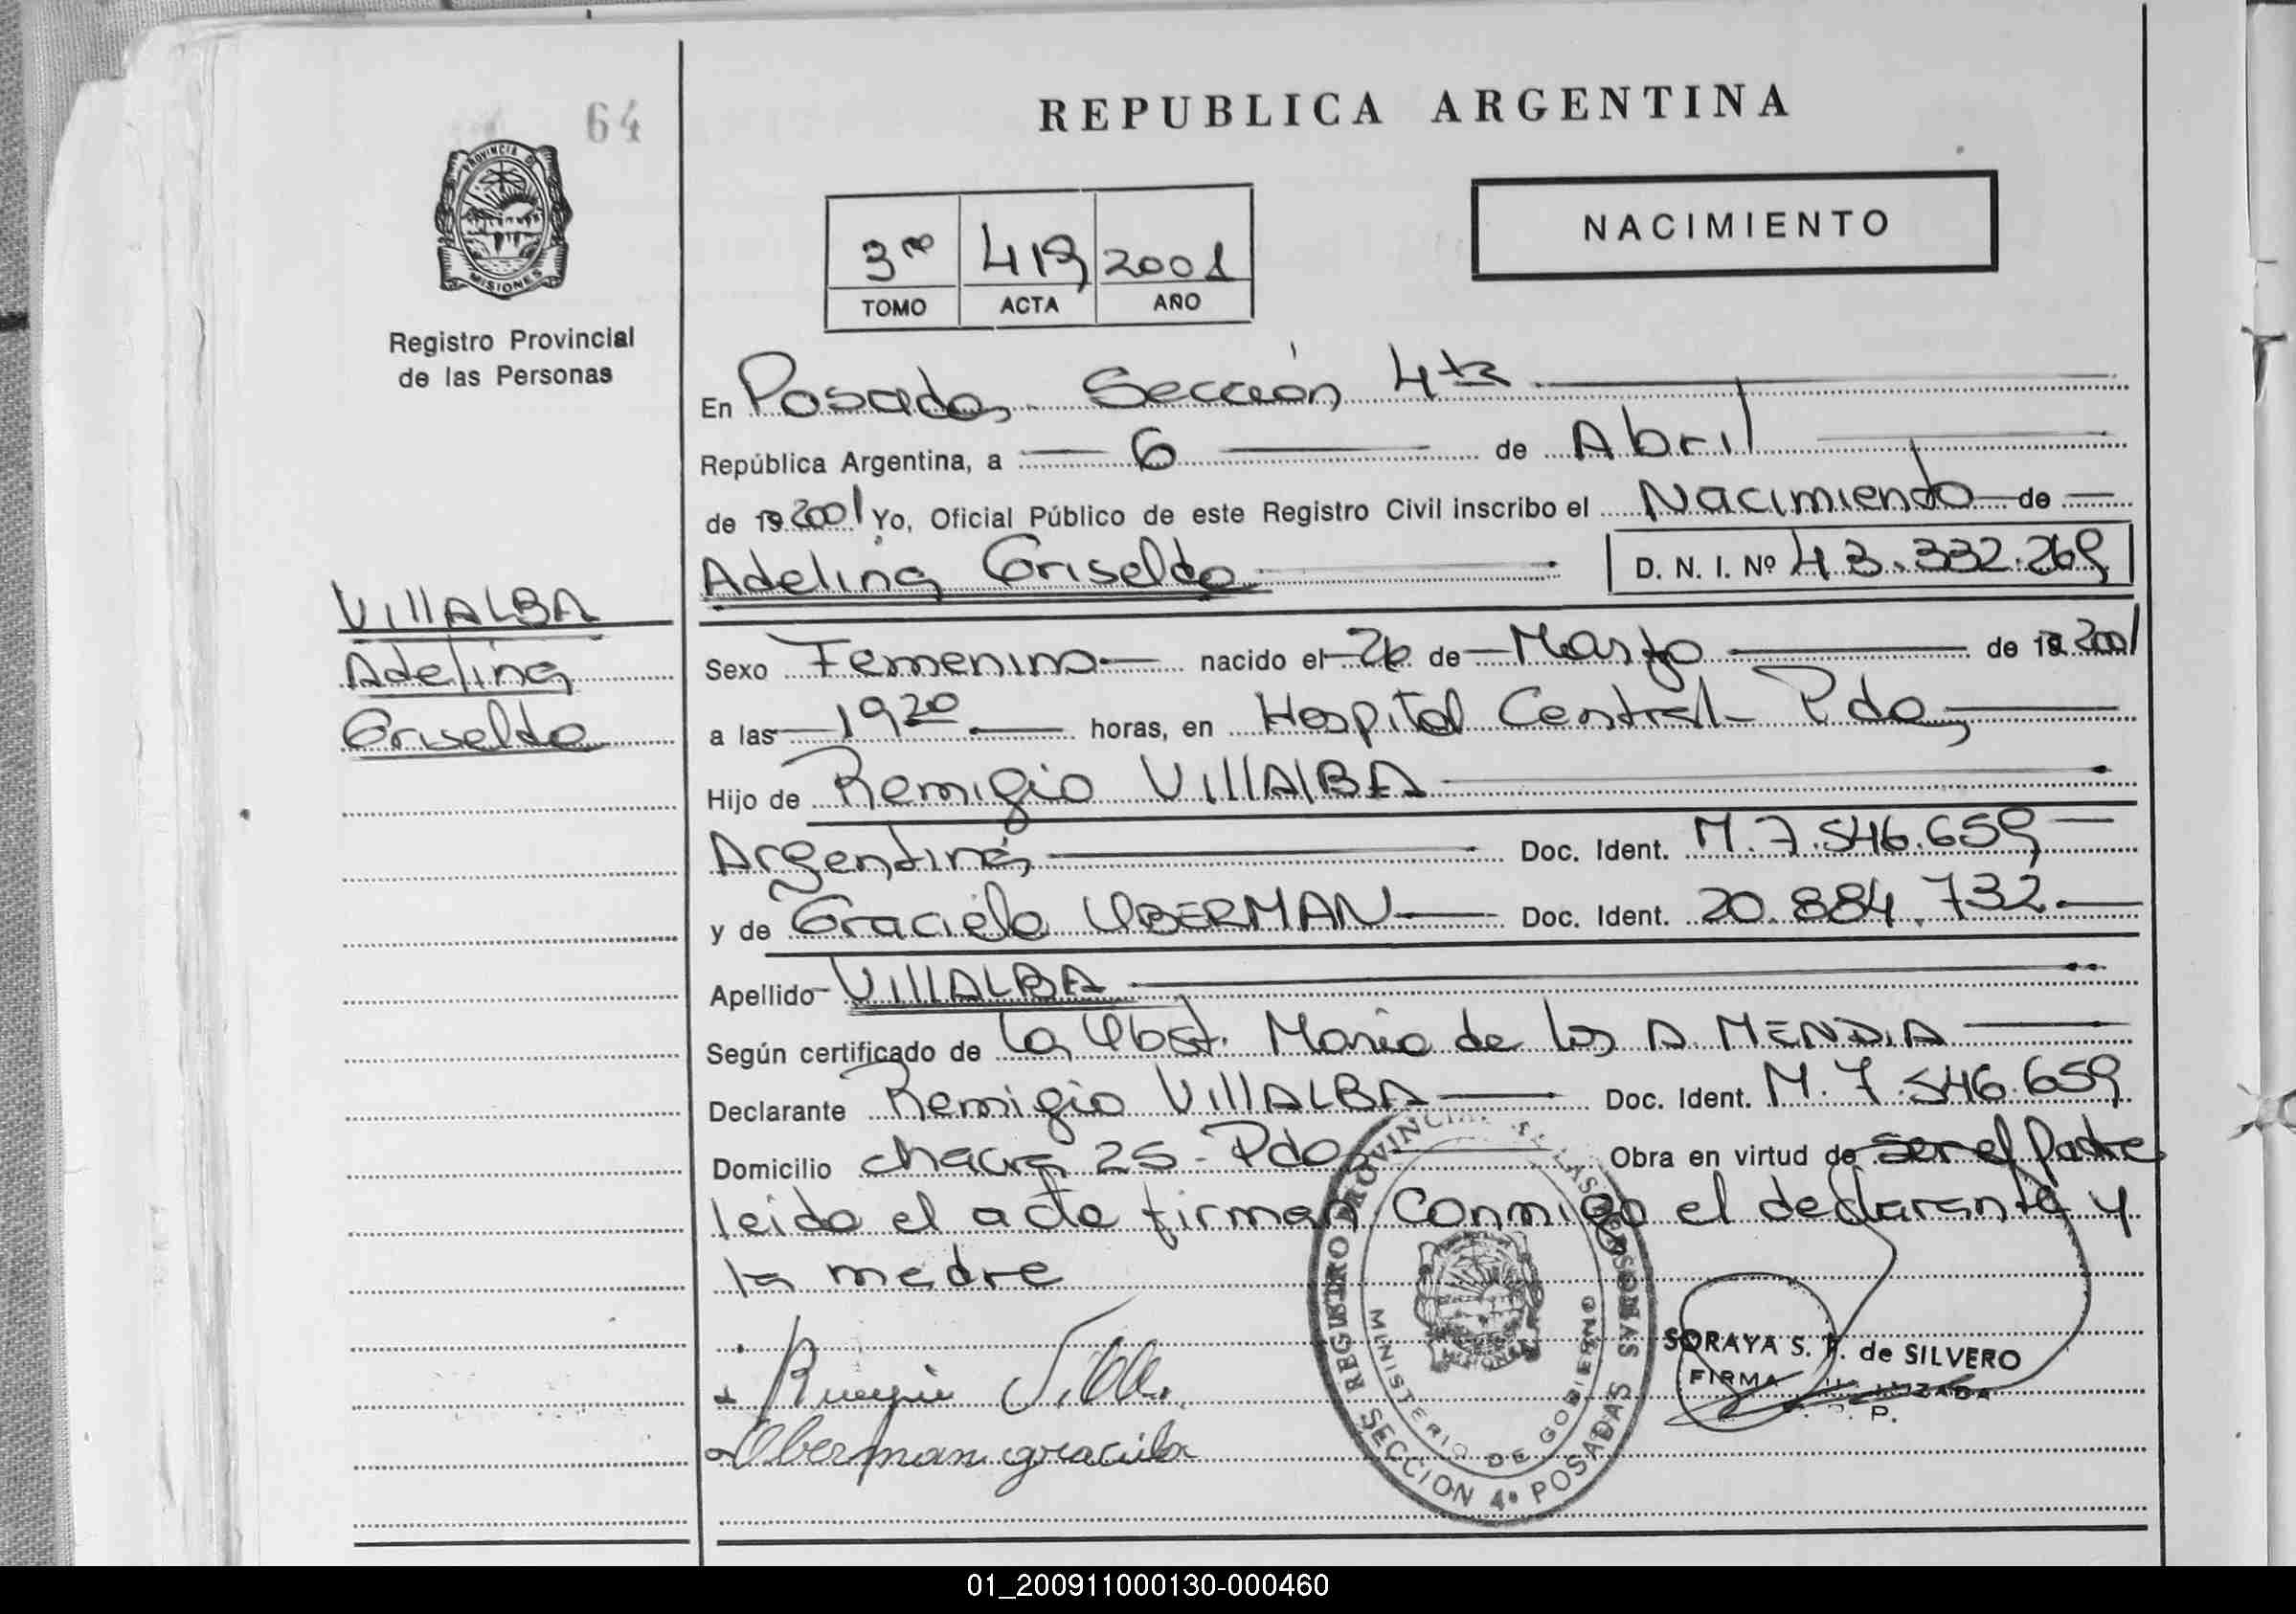 64
PROVINCIA DE
MISIONES
Registro Provincial
de las Personas
REPUBLICA ARGENTINA
NACIMIENTO
3ro 419 2001
TOMO ACTA AÑO
En Posadas Sección 4ta
República Argentina, a 6 de Abril
de 19 2001 Yo, Oficial Público de este Registro Civil inscribo el Nacimiento de
Adelina Griselda D. N. I. Nº 43.332.269
VIllALBA
Adelina
Griselda
Sexo Femenino nacido el 26 de Marzo de 19 2001
a las 1920 horas, en Hospital Central Pdas
Hijo de Remigio VIllAlBA
Argentinos Doc. Ident. M.7.546.659
y de Graciela OBERMAN Doc. Ident. 20.884.732.
Apellido VIllALBA
Según certificado de la Obst. María de los A. MENDIA
Declarante Remigio VIllALBA Doc. Ident. M.7.546.659
Domicilio chacra 25 - Pdas Obra en virtud de ser el Padre
leida el acta firman conmigo el declarante y
la madre
Oberman graciela
REGISTRO PROVINCIAL DE LAS PERSONAS
MINISTERIO DE GOBIERNO
SECCION 4ª POSADAS
SORAYA S. F. de SILVERO
FIRMA
R. P. P.
01_200911000130-000460